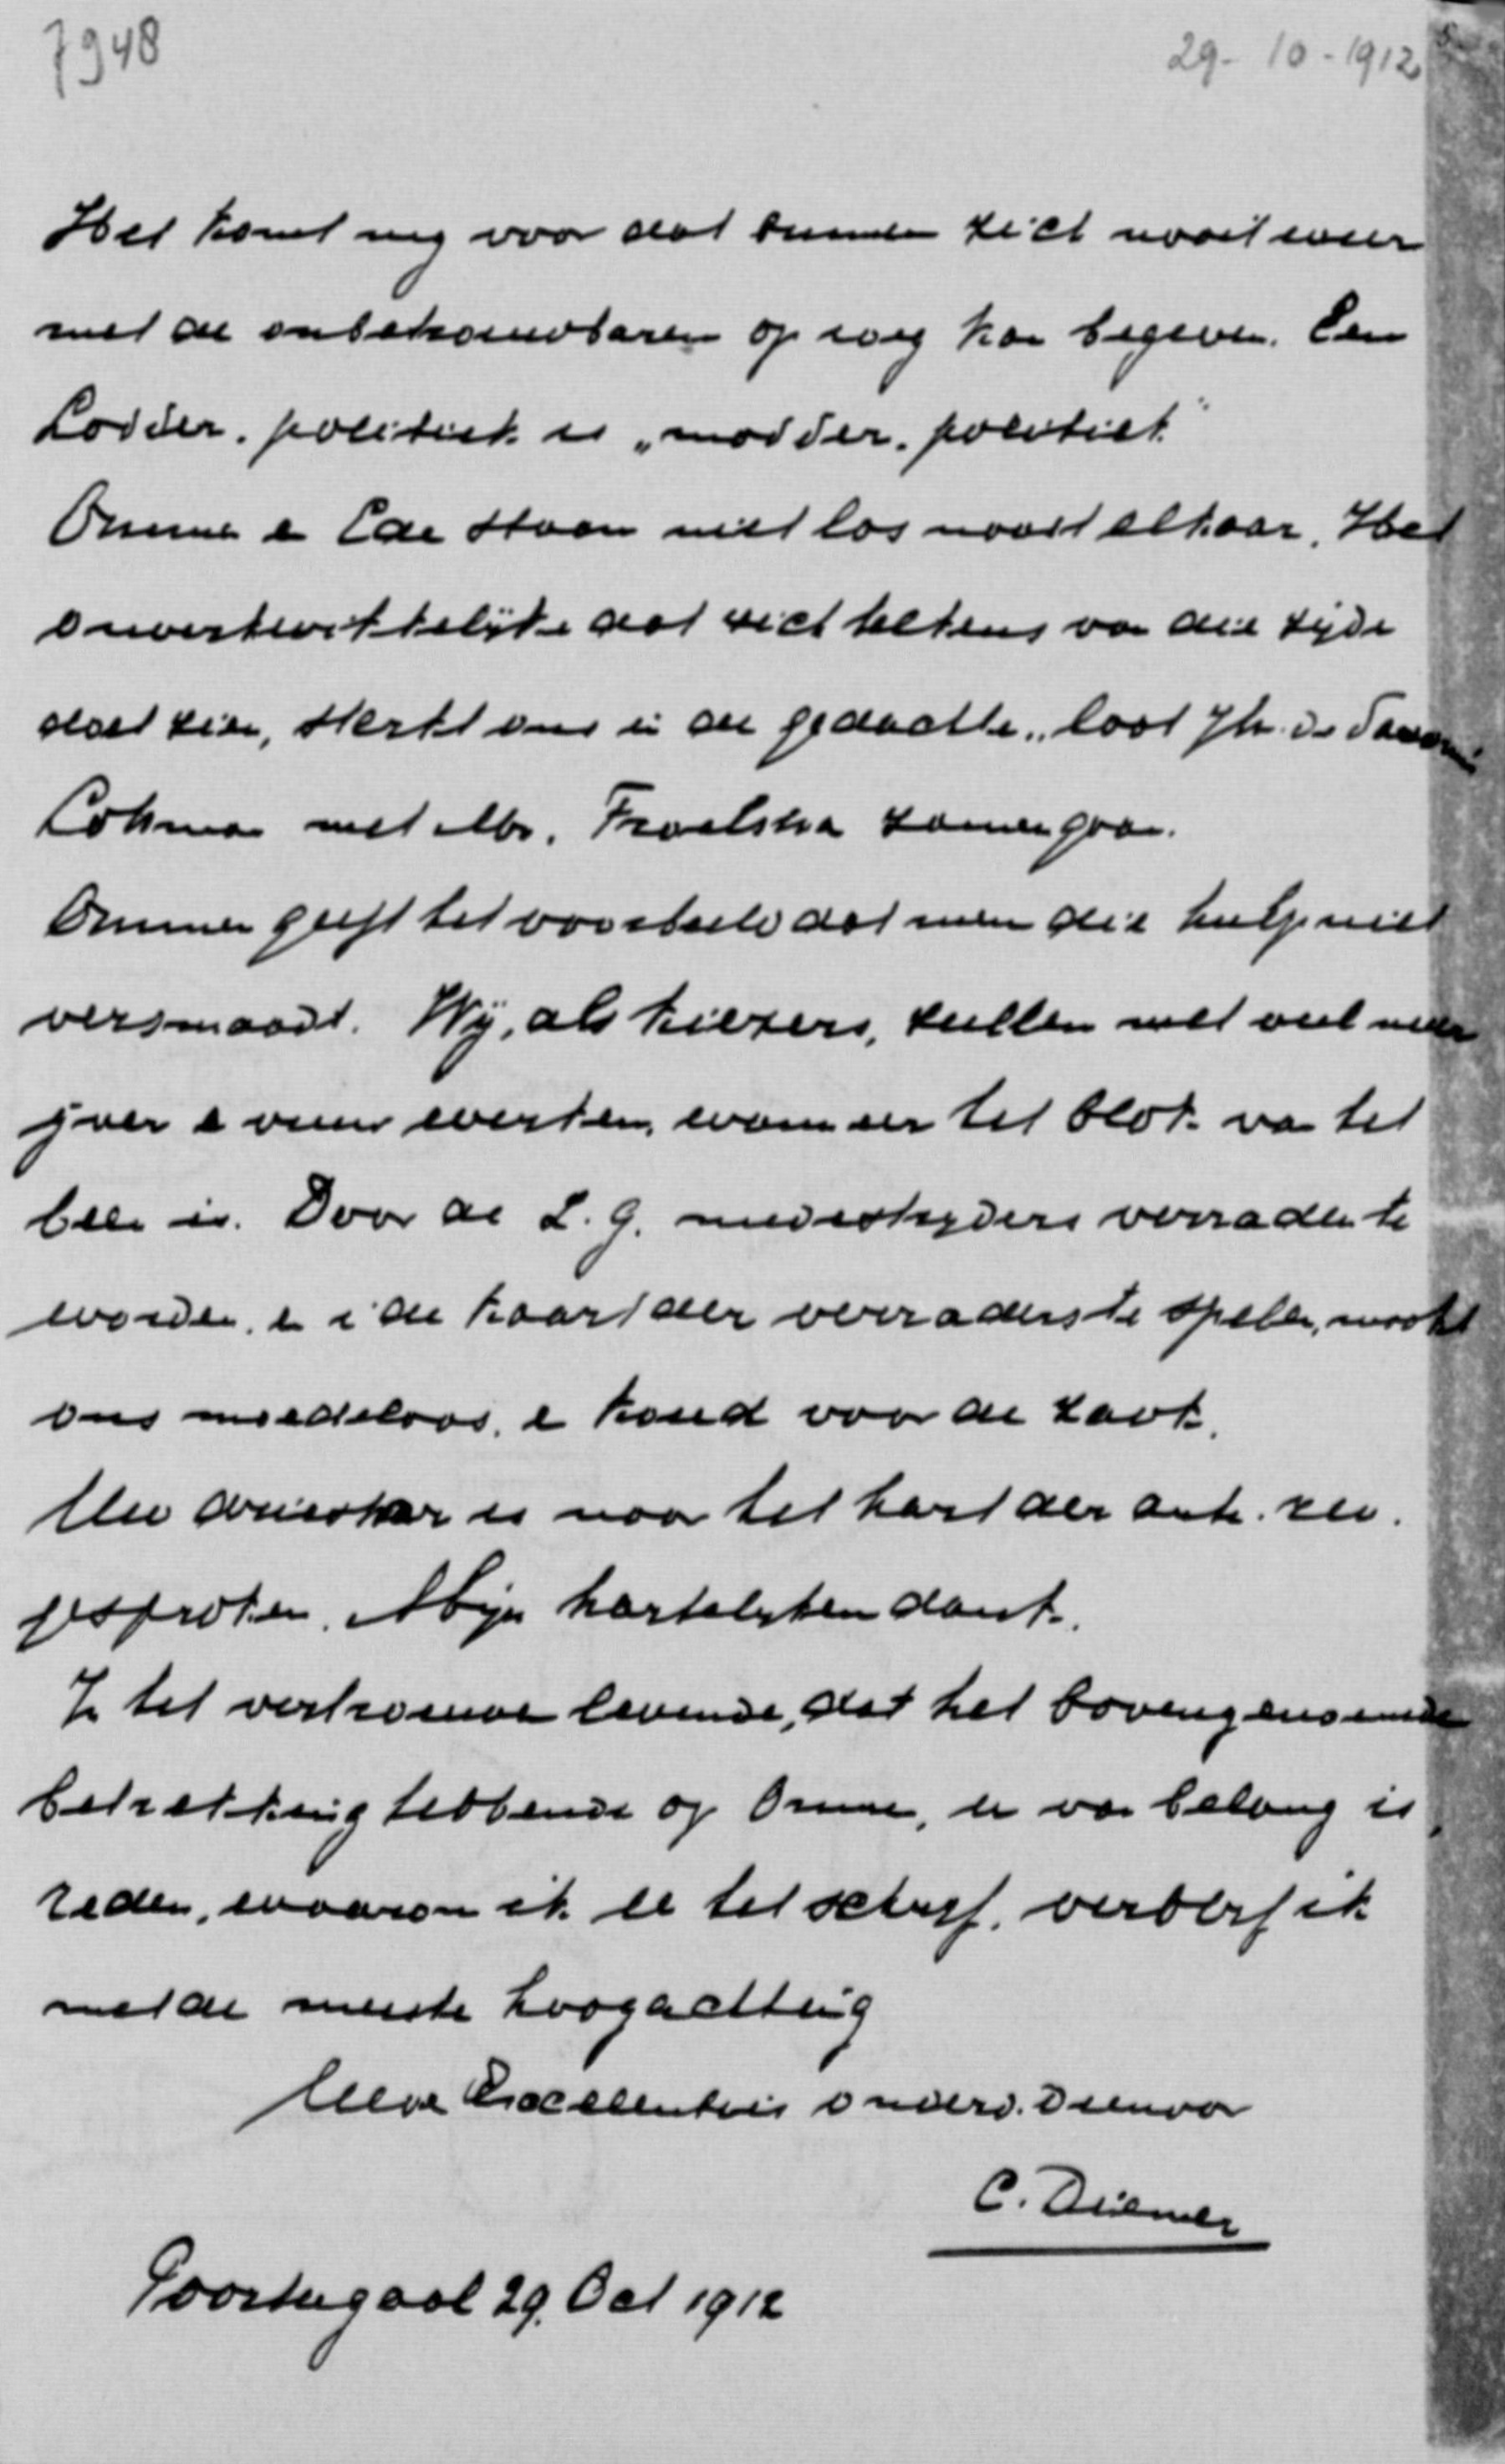 7948
29-10-1912
Het komt mij voor dat Ommen zich nooit weer
met de onbekwambaren op weg kan begeven. Een
Lodder-politiek is „modder-politiek"
Ommen e Ede staan niet los naast elkaar. Het
onverkwikkelijke dat zich telkens van die zijde
doet zien, sterkt ons in de gedachte „laat Jhr. de Savornin
Lohman met Mr. Troelstra samengaan.
Ommen geeft het voorbeeld dat men die hulp niet
versmaadt. Wij, als kiezers, zullen met veel meer
ijver e vuur werken, wanneer het blok van het
been is. Door de L.G. medestrijders verraden te
worden, e in de kaart der verraders te spelen, maakt
ons moedeloos, e koud voor de zaak.
Uw driestar is naar het hart der antr. rev.
gesproken. Mijn hartelijken dank.
In het vertrouwen levende, dat het bovengenoemde
betrekking hebbende op Ommen, er van belang is
reden, waarom ik er het schreef, verblijf ik
met de meeste hoogachting
Uwe Excellenties onderd. dienaar
C. Diemer
Poortugaal 29. Oct 1912